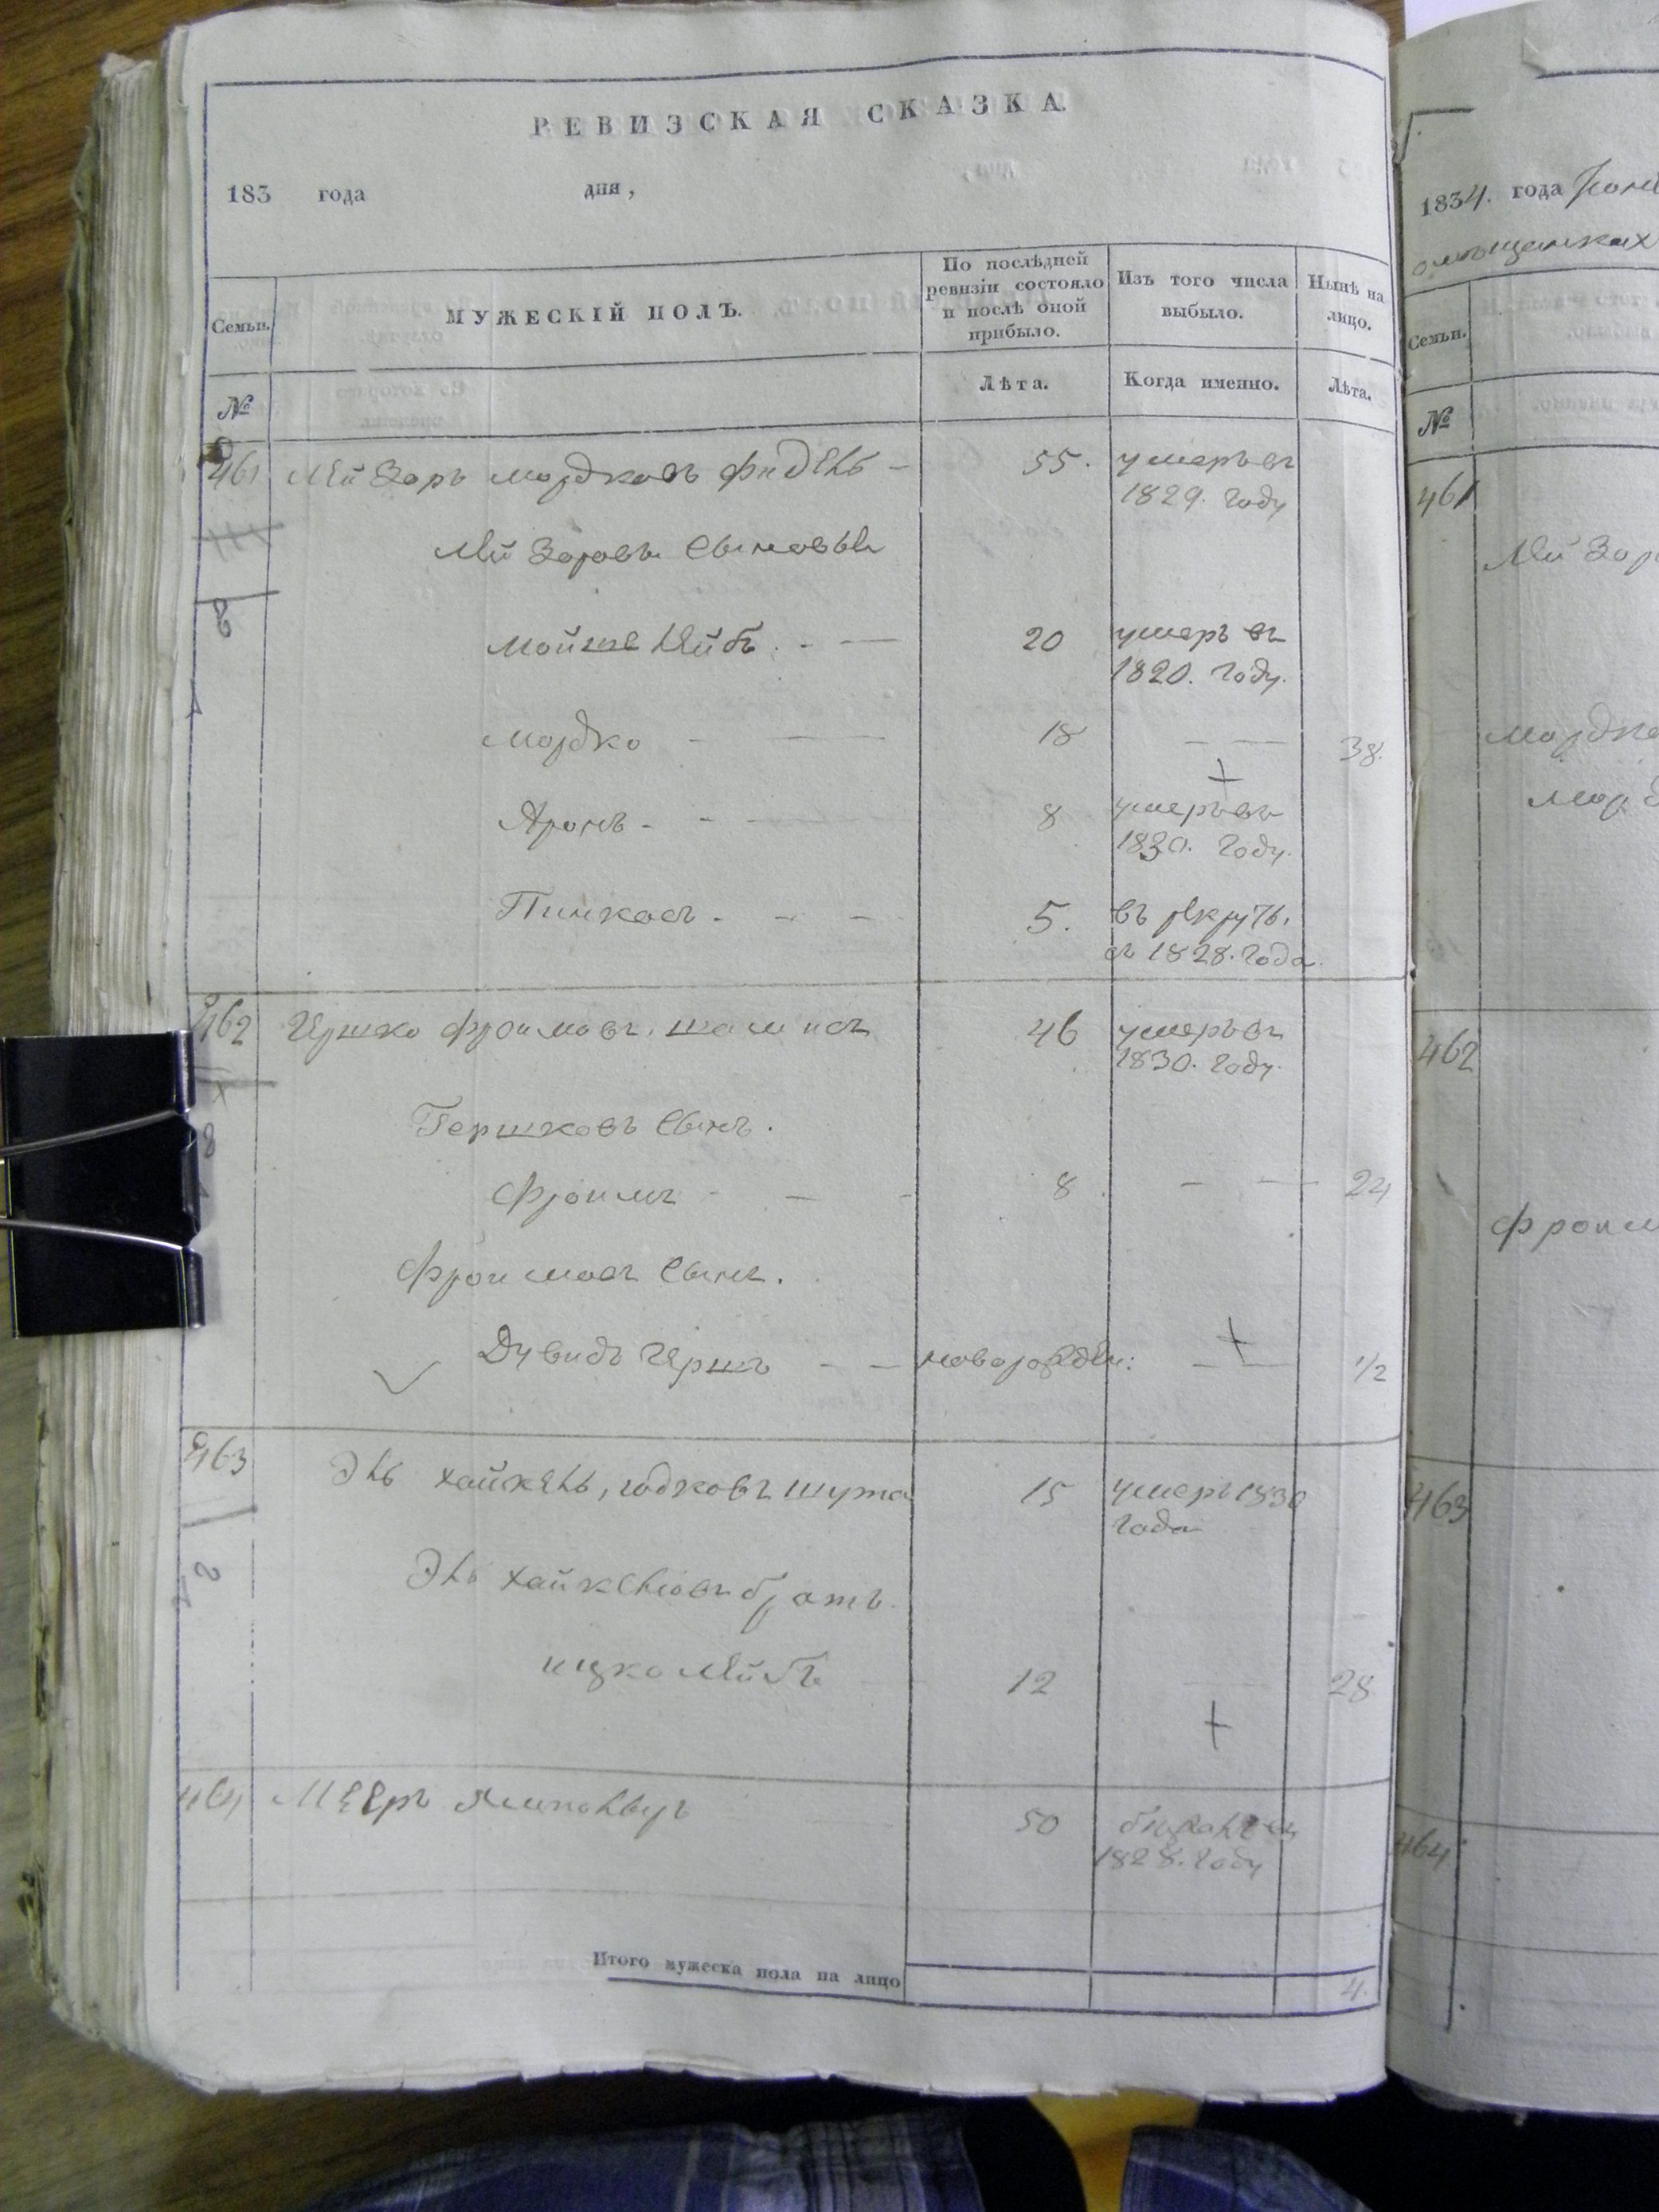 РЕВИЗСКАЯ СКАЗКА.
183 года дня,
Семьи.
МУЖЕСКІЙ ПОЛЪ.
По послѣдней
ревизіи состояло
и послѣ оной
прибыло.
Изъ того числа
выбыло.
Нынѣ на
лицо.
№
Лѣта.
Когда именно.
Лѣта.
461 Лейзоръ Мордковъ Фидель - 55. умеръ въ
1829. году
Лейзоровы сыновья
Мойше Лейбъ - — 20 умеръ въ
1820. году.
Мордко - — 18 — — 38.
Аронъ - - — 8 умеръ въ
1830. году.
Пинкасъ - - - 5. въ рекруты.
съ 1828. года.
462 Гершко Фроимовъ Шамисъ 46 умеръ въ
1830. году.
Гершковъ сынъ.
Фроимъ - — - 8 - — 24
Фроимовъ сынъ.
Дувидъ Гершъ - — новорожден: — 1/2
463 Эль Хайкель, Юдковъ Шума 15 умеръ 1830
года
Эль Хайкелювъ братъ
Ицко Лейбъ 12 28
464 Мееръ 50
1828. году
Итого мужеска пола на лицо 4.
1834. года
Семьи.
№
461
Лейзор
Мордко
462
Фроим
463
464